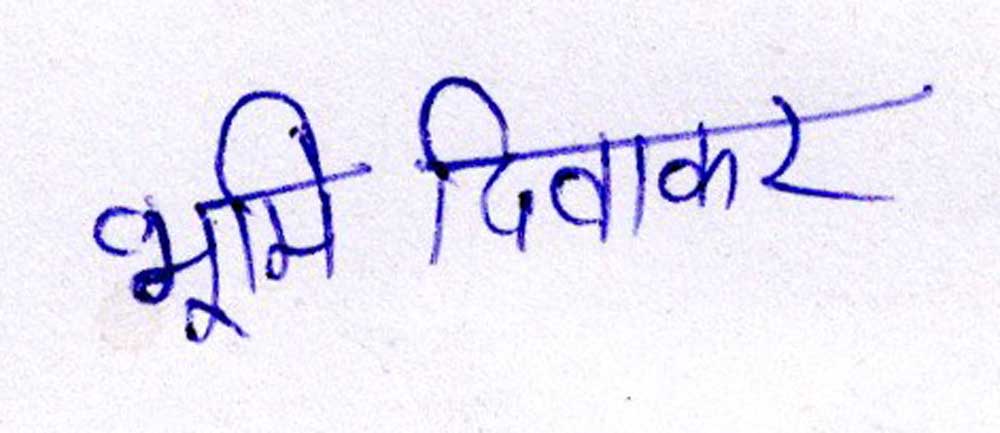 भूमि दिवाकर